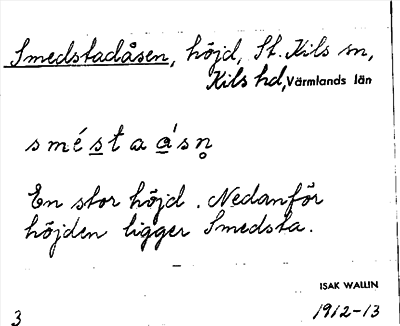 Smedstadåsen, höjd, St. Kils sn,
Kils hd, Värmlands län
smés̲taa̲̍sn̥
En stor höjd. Nedanför
höjden ligger Smedsta.
ISAK WALLIN
3 1912-13